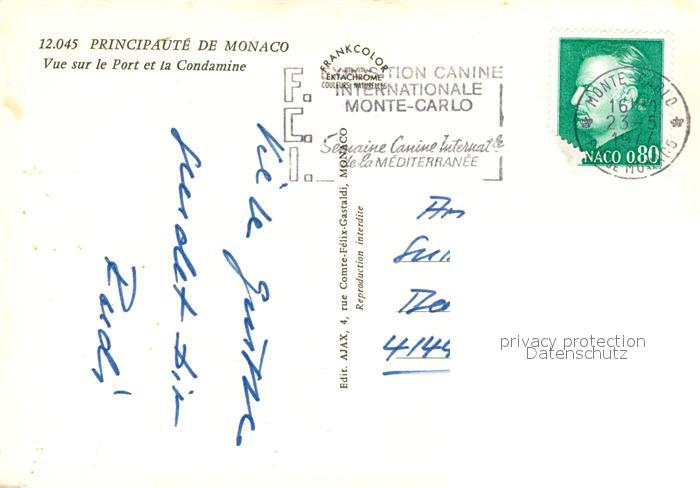 12.045 PRINCIPAUTÉ DE MONACO
Vue sur le Port et la Condamine
FRANKCOLOR
EKTACHROME
COULEURS NATURELLES
F.
C.
I.
EXPOSITION CANINE
INTERNATIONALE
MONTE-CARLO
Semaine Canine Internatle
de la MÉDITERRANÉE
MONTE-CARLO
16H
23 5
NACO 0,80
Edit. AJAX, 4, rue Comte-Félix-Gastaldi, MONACO
Reproduction interdite
Viele Grüsse
sendet dir
Rudi
4144
privacy protection
Datenschutz